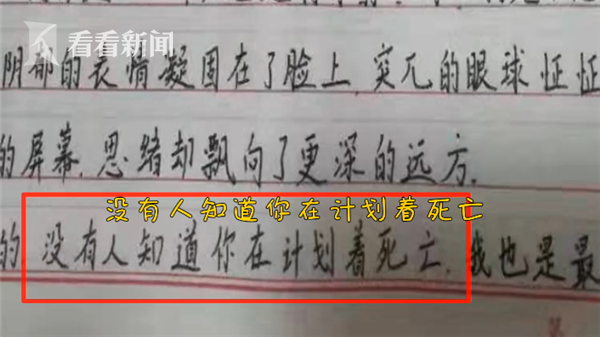 看看新闻
阴郁的表情凝固在了脸上，突兀的眼球怔怔
的屏幕，思绪却飘向了更深的远方。
没有人知道你在计划着死亡
的，没有人知道你在计划着死亡，我也是最